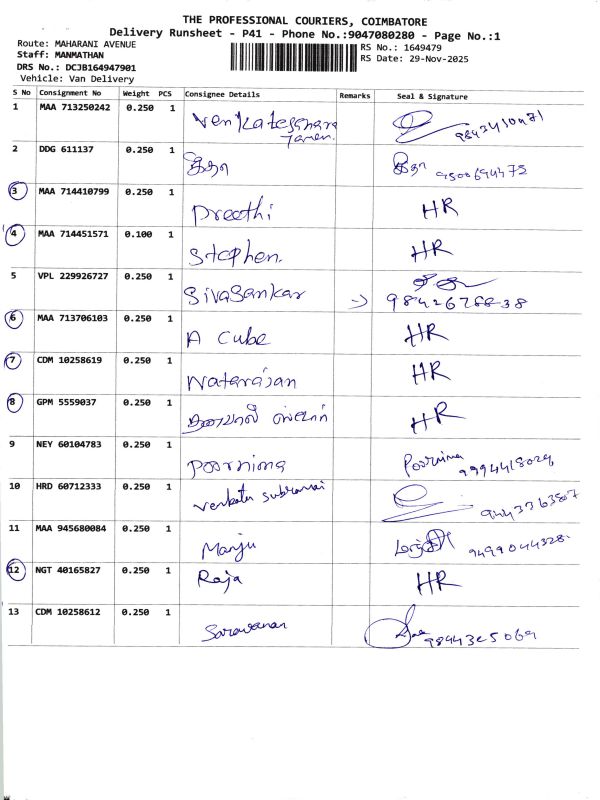 THE PROFESSIONAL COURIERS, COIMBATORE
Delivery Runsheet - P41 - Phone No.:9047080280 - Page No.:1
Route: MAHARANI AVENUE
Staff: MANMATHAN
DRS No.: DCJB164947901
Vehicle: Van Delivery
RS No.: 1649479
RS Date: 29-Nov-2025
S No Consignment No Weight PCS Consignee Details Remarks Seal & Signature
1 MAA 713250242 0.250 1 Venkateshwara
2 DDG 611137 0.250 1 9500694475
3 MAA 714410799 0.250 1 Preethi HR
4 MAA 714451571 0.100 1 Stephen. HR
5 VPL 229926727 0.250 1 Sivasankar
6 MAA 713706103 0.250 1 A Cube HR
7 CDM 10258619 0.250 1 Natarajan HR
8 GPM 5559037 0.250 1 HR
9 NEY 60104783 0.250 1 Poornima Poornima
10 HRD 60712333 0.250 1 Venkata
11 MAA 945680084 0.250 1 Manju 9499044328.
12 NGT 40165827 0.250 1 Raja HR
13 CDM 10258612 0.250 1 Saravanan